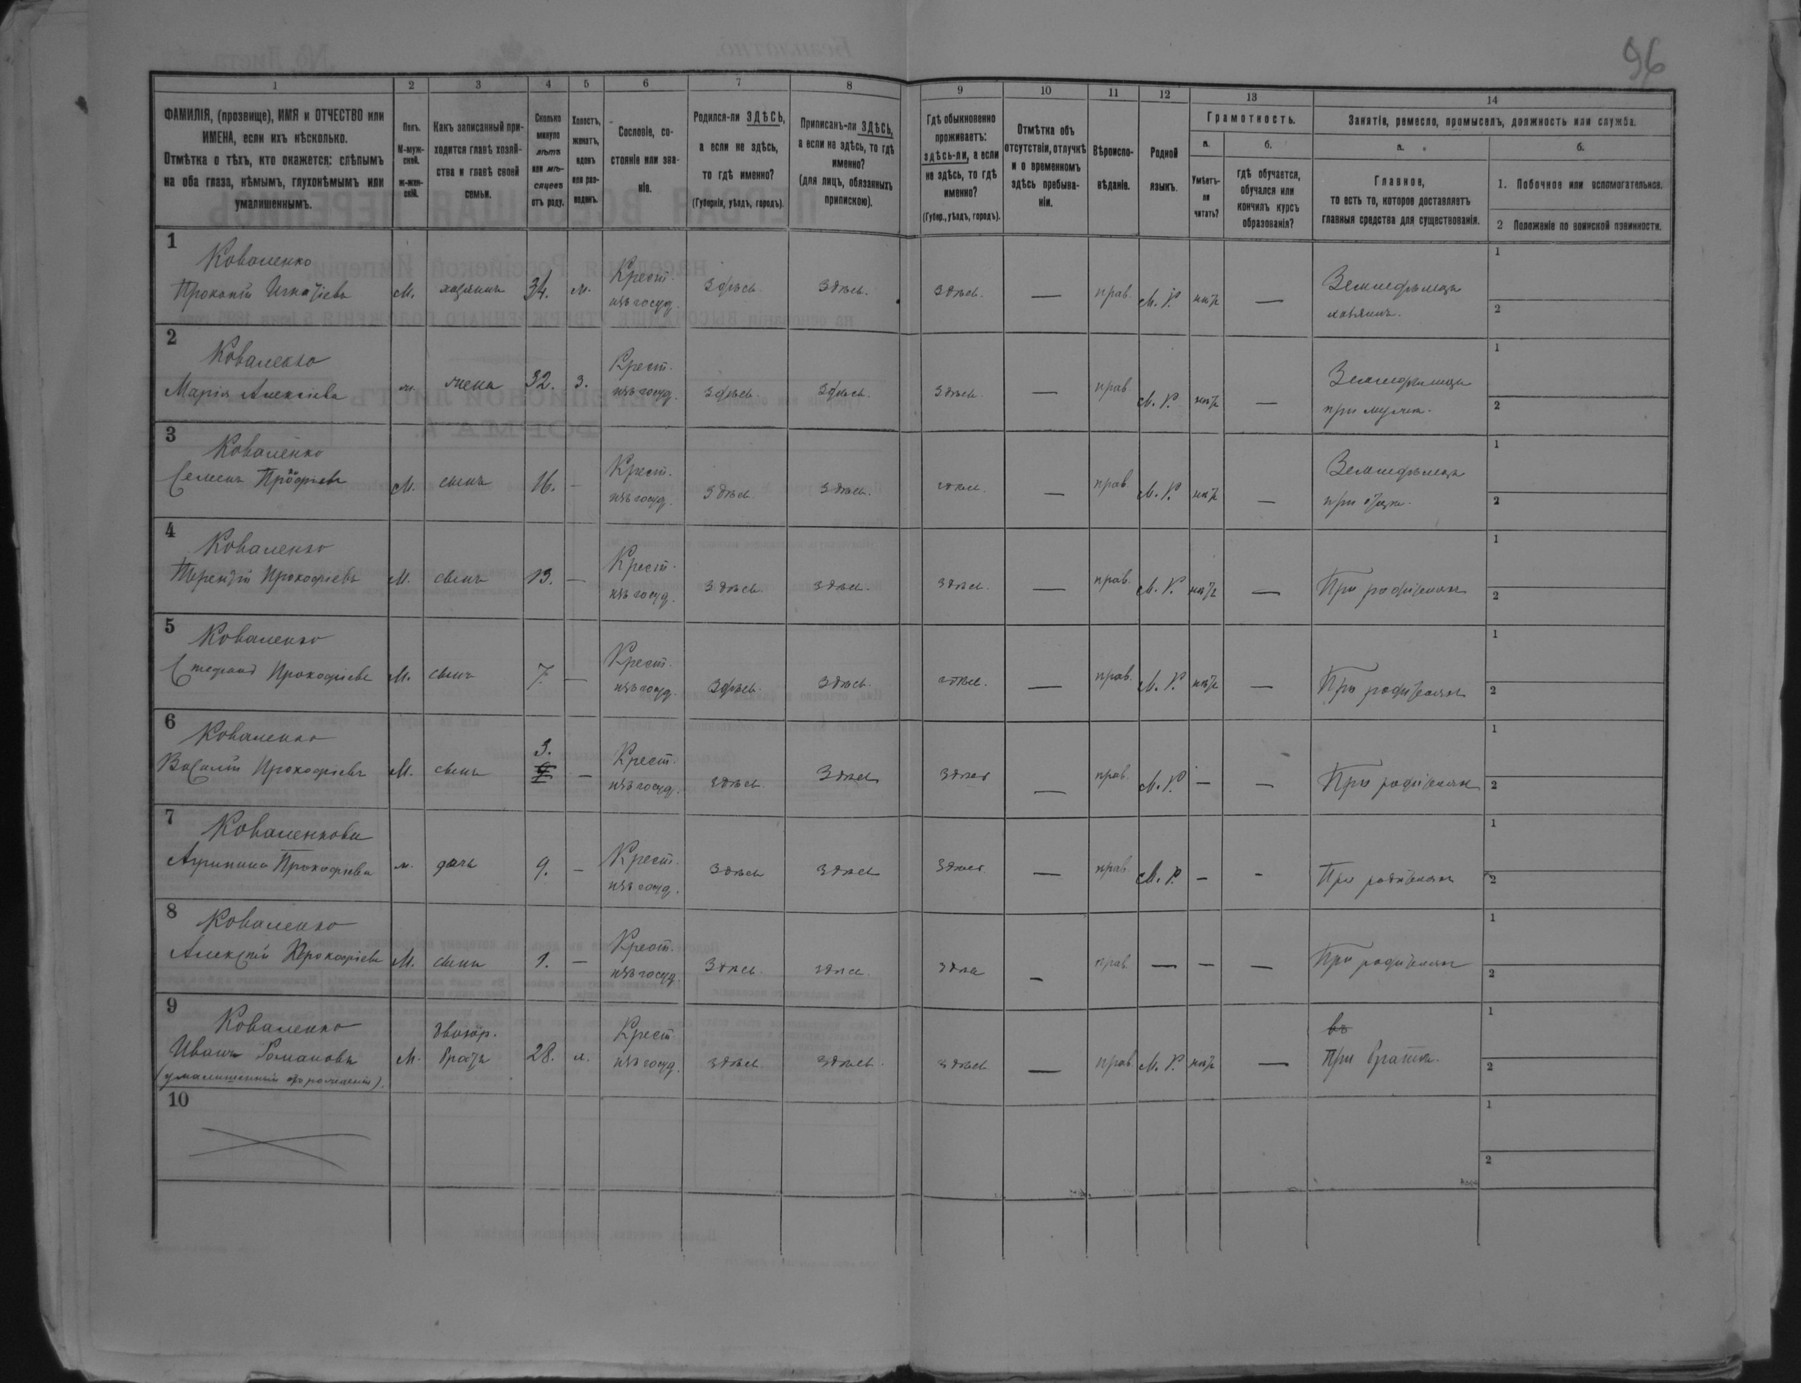 96
1 2 3 4 5 6 7 8 9 10 11 12 13 14
ФАМИЛІЯ, (прозвище), ИМЯ и ОТЧЕСТВО или
ИМЕНА, если ихъ нѣсколько.
Отмѣтка о тѣхъ, кто окажется: слѣпымъ
на оба глаза, нѣмымъ, глухонѣмымъ или
умалишеннымъ.
Полъ.
М-муж-
ской.
ж-жен-
скій.
Какъ записанный при-
ходится главѣ хозяй-
ства и главѣ своей
семьи.
Сколько
минуло
лѣтъ
или мѣ-
сяцевъ
отъ роду.
Холостъ,
женатъ,
вдовъ
или раз-
веденъ.
Сословіе, со-
стояніе или зва-
ніе.
Родился-ли ЗДѢСЬ,
а если не здѣсь,
то гдѣ именно?
(Губернія, уѣздъ, городъ).
Приписанъ-ли ЗДѢСЬ,
а если не здѣсь, то гдѣ
именно?
(для лицъ, обязанныхъ
припискою).
Гдѣ обыкновенно
проживаетъ:
здѣсь-ли, а если
не здѣсь, то гдѣ
именно?
(Губер., уѣздъ, городъ).
Отмѣтка объ
отсутствіи, отлучкѣ
и о временномъ
здѣсь пребыва-
ніи.
Вѣроиспо-
вѣданіе.
Родной
языкъ.
Грамотность.
а.
Умѣетъ-
ли
читать?
б.
гдѣ обучается,
обучался или
кончилъ курсъ
образованія?
Занятіе, ремесло, промыселъ, должность или служба.
а.
Главное,
то есть то, которое доставляетъ
главныя средства для существованія.
б.
1. Побочное или вспомогательное.
2 Положеніе по воинской повинности.
1
Коваленко Крест. Земледѣлецъ 1
Прокопій Игнатіевъ М. хозяинъ 34. ж. изъ госуд. Здѣсь. Здѣсь. Здѣсь. — прав. М. Р. нѣтъ — хозяинъ. 2
2
Коваленко Крест. 1
Марія Алексѣева ж. жена 32. з. изъ госуд. Здѣсь Здѣсь. Здѣсь. — прав М. Р. нѣтъ — при мужѣ. 2
3
Коваленко Крест. Земледѣлецъ 1
Семенъ М. сынъ 16. - изъ госуд. Здѣсь Здѣсь. здѣсь. — прав М. Р. нѣтъ — при отцѣ. 2
4
Коваленко Крест. 1
Терентій Прокофіевъ М. сынъ 13. — изъ госуд. Здѣсь. Здѣсь. Здѣсь. — прав. М. Р. нѣтъ — При родителяхъ 2
5
Коваленко Крест. 1
Стефанъ Прокофіевъ М. сынъ 7. — изъ госуд. Здѣсь. Здѣсь. здѣсь. — прав. М. Р. нѣтъ — При родителяхъ 2
6
Коваленко 3. Крест. 1
Василій Прокофіевъ М. сынъ — изъ госуд. Здѣсь. Здѣсь Здѣсь — прав. М. Р. — — При родителяхъ 2
7
Коваленкова Крест. 1
Агрипина Прокофіева ж. дочь 9. — изъ госуд. Здѣсь Здѣсь Здѣсь — прав. М. Р. — - При родителяхъ 2
8
Коваленко Крест. 1
Алексѣй Прокофіевъ М. сынъ 1. — изъ госуд. Здѣсь. здѣсь. здѣсь — прав — — — При родителяхъ 2
9
Коваленко двоюр. Крест. въ 1
Иванъ Романовъ М. братъ 28. х. изъ госуд. Здѣсь. Здѣсь. Здѣсь — прав М. Р. нѣтъ — При братѣ. 2
(умалишенный отъ рожденія).
10
1
2